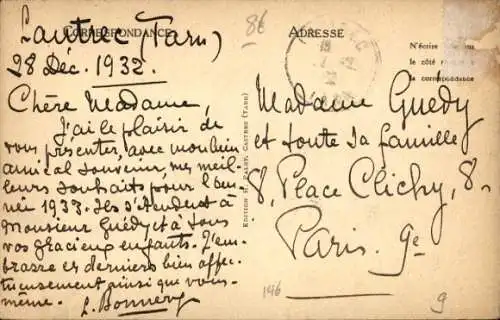 CORRESPONDANCE
Lautrec (Tarn)
28 Déc. 1932.
Chère Madame,
J'ai le plaisir de
vous présenter, avec mon bien
amical souvenir, mes meil-
leurs souhaits pour l'an-
née 1933. Ils s'étendent à
Monsieur Guédy et à tous
vos gracieux enfants. J'em-
brasse ces derniers bien affec-
tueusement ainsi que vous-
même. L. Bonnery
86
ADRESSE
N'écrire
le côté
la correspondance
Madame Guédy
et toute sa famille
8, Place Clichy, 8,
Paris. 9e
146
9
CASTRES (TARN)